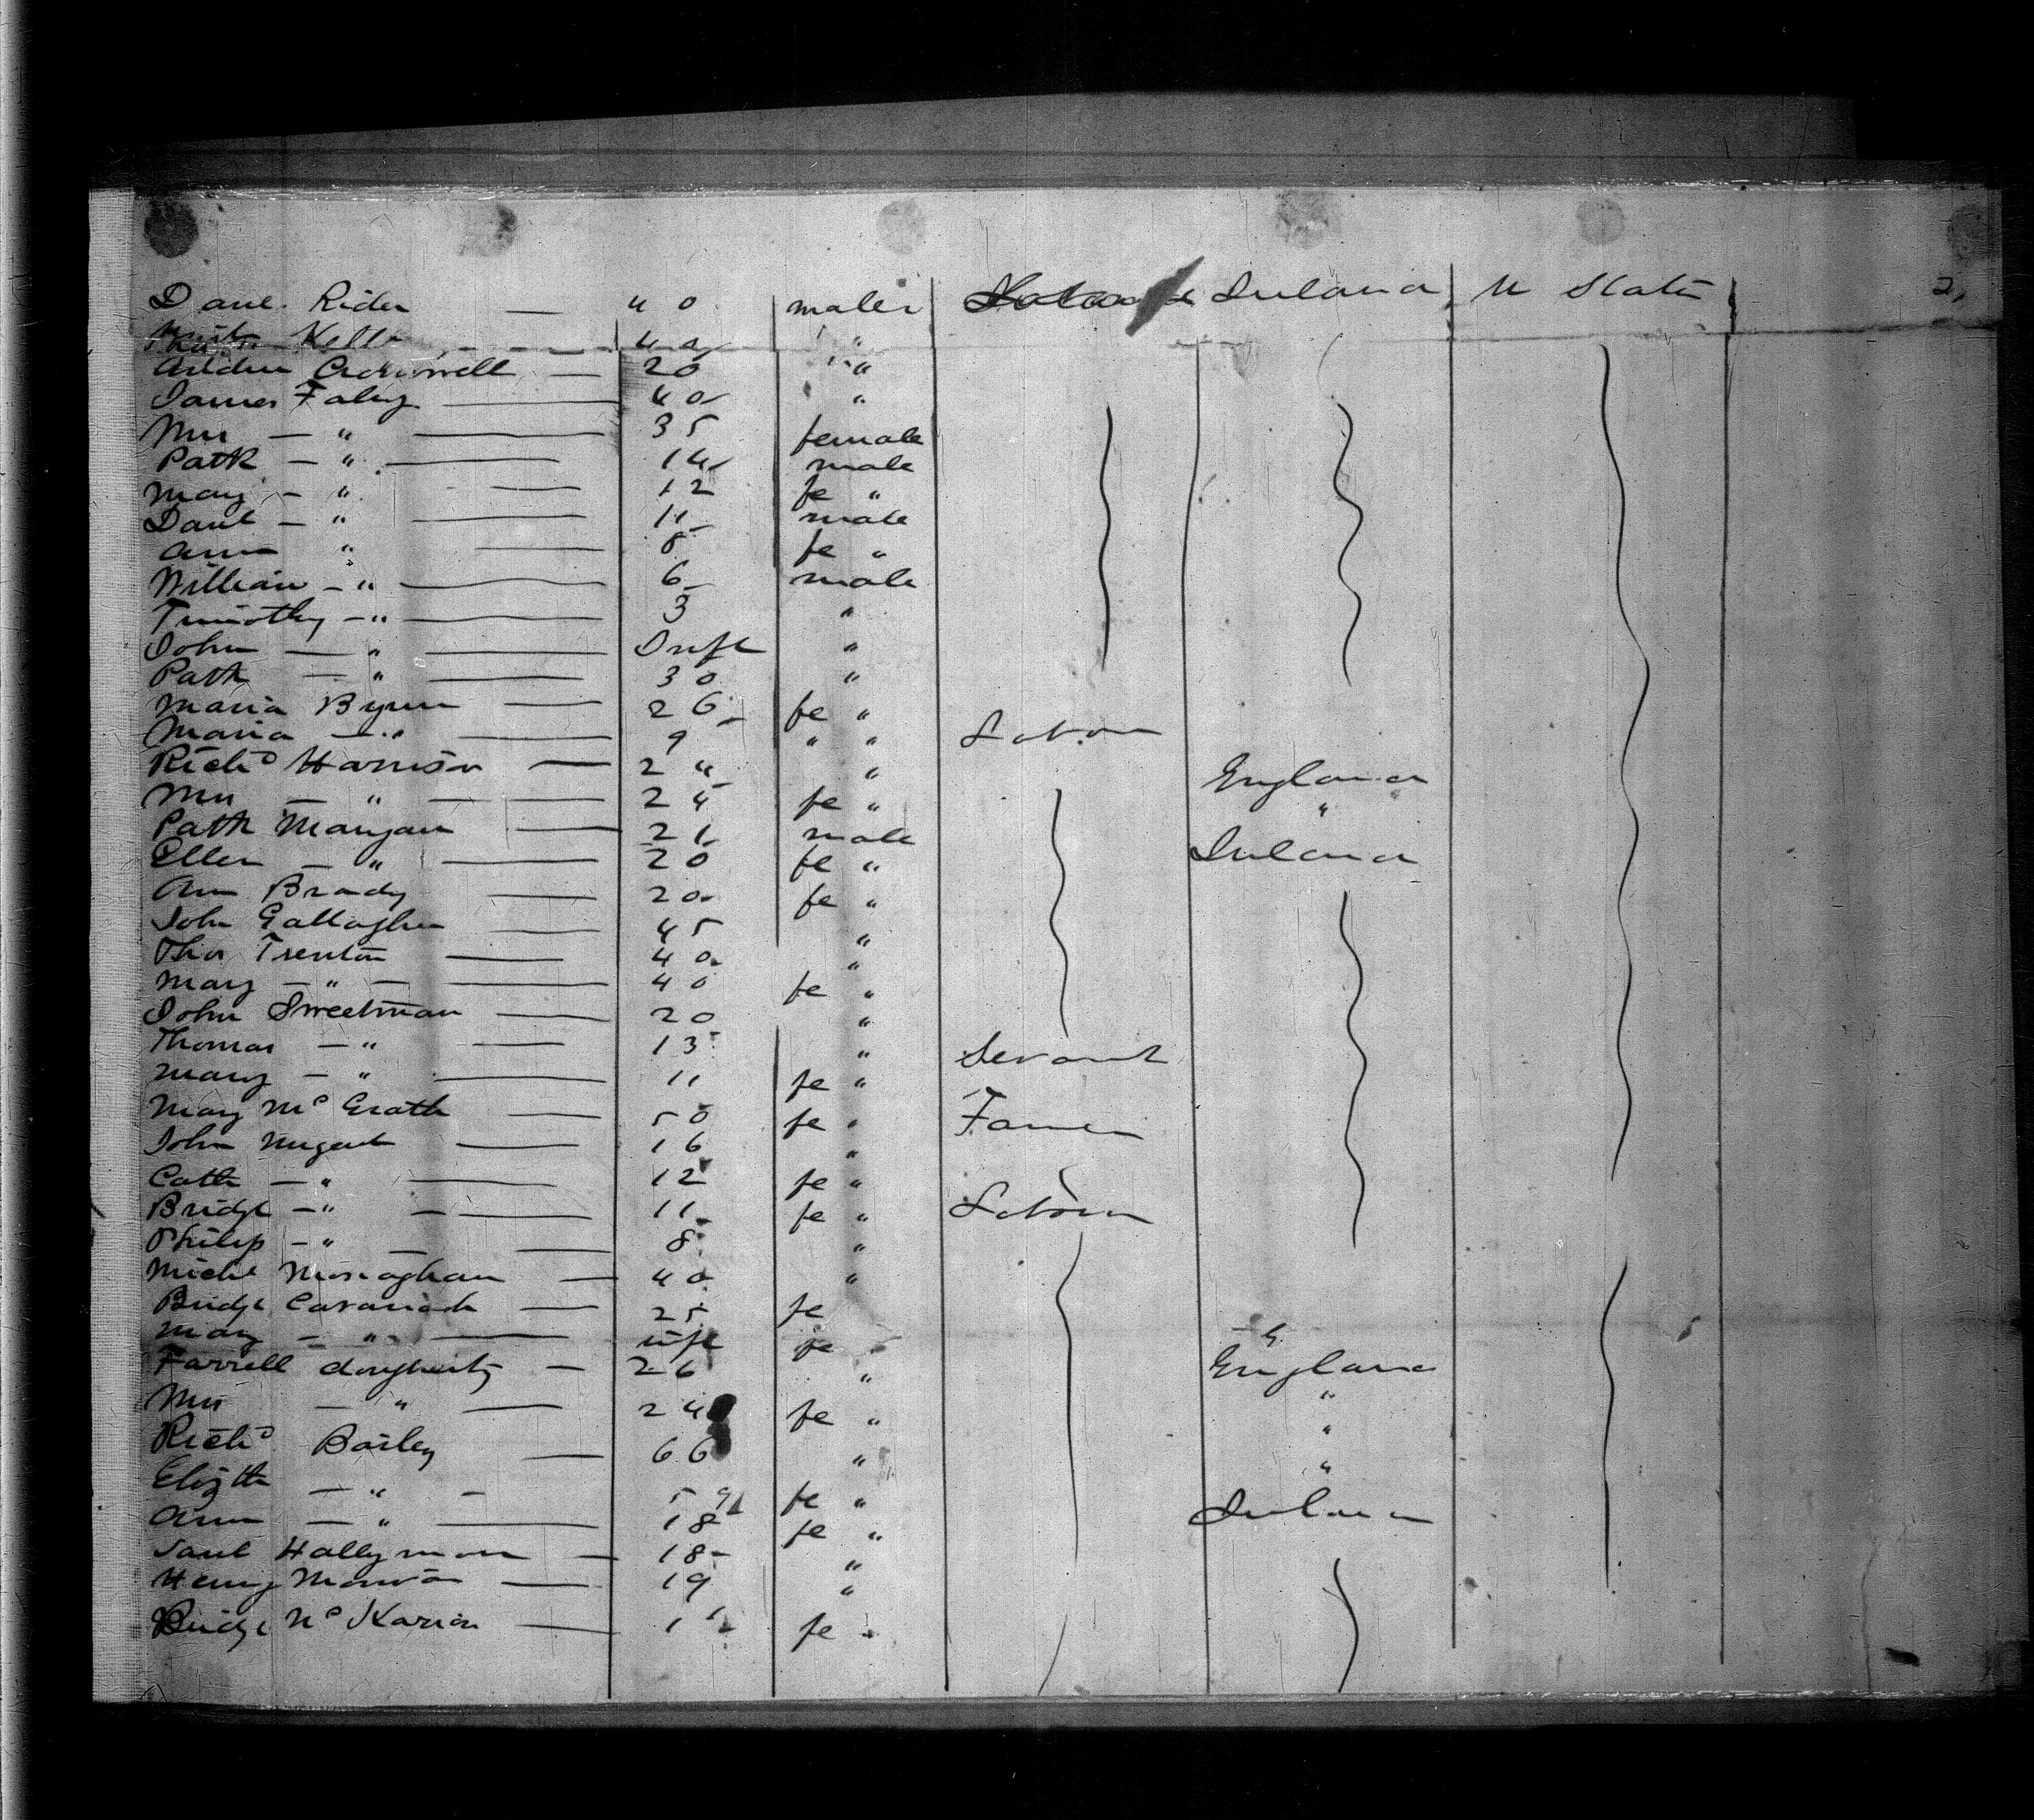 Danl. Rider — 40 males Ireland U States 2,
Kelly — — — 40 "
20 "
James Faley — 40 "
Mrs — " — 35 female
Patk — " — 14 male
Mary — " — 12 fe "
Danl — " — 11 male
Ann " — 8 fe "
William — " — 6 male
Timothy — " — 3 "
John — " — Inft "
Patk — " — 30 "
Maria Byrne — 26 fe "
Maria — " — 9 " " Labour
Richd Harrison — 24 " England
Mrs — " — 24 fe " "
Patk Mangan — 21 male
Ellen — " — 20 fe " Ireland
Ann Brady — 20 fe "
John Gallagher — 45 "
Thos Trenton — 40 "
Mary — " — 40 fe "
John Sweetman — 20 "
Thomas — " — 13 " Servant
Mary — " — 11 fe "
Mary Mc Grath — 50 fe " Farmer
John Nugent — 16 "
Cath — " — 12 fe "
Bridgt — " — 11 fe " Labour
Philip — " — 8 "
Michl Monaghan — 40 "
Bridgt Cavanagh — 25 fe
Mary — " — inft fe "
Farrell dougherty — 26 " England
Mrs — " — 24 fe " "
Richd Bailey — 66 " "
Elizth — " — 59 fe " "
Ann — " — 18 fe " Ireland
Hallyman — 18 "
Henry — 19 "
Bridgt Mc — fe "